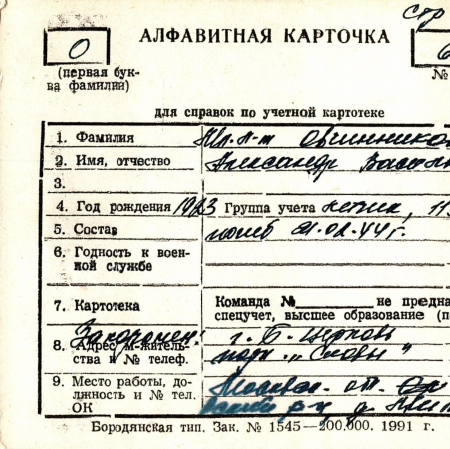 стр
О
АЛФАВИТНАЯ КАРТОЧКА
(первая бук-
ва фамилии)
№
для справок по учетной картотеке
1. Фамилия Мл. л-т Овчиннико
2. Имя, отчество Александр Васил
3.
4. Год рождения 1923 Группа учета летчик, 11
5. Состав погиб 21.02.44 г.
6. Годность к воен-
ной службе
7. Картотека Команда № не предна
спецучет, высшее образование (п
Захоронен: г. Б. Церковь
8. Адрес м-житель-
ства и № телеф. парк „
9. Место работы, до-
лжность и № тел.
ОК
Московск.
р-н, д.
Бородянская тип. Зак. № 1545—200.000. 1991 г.